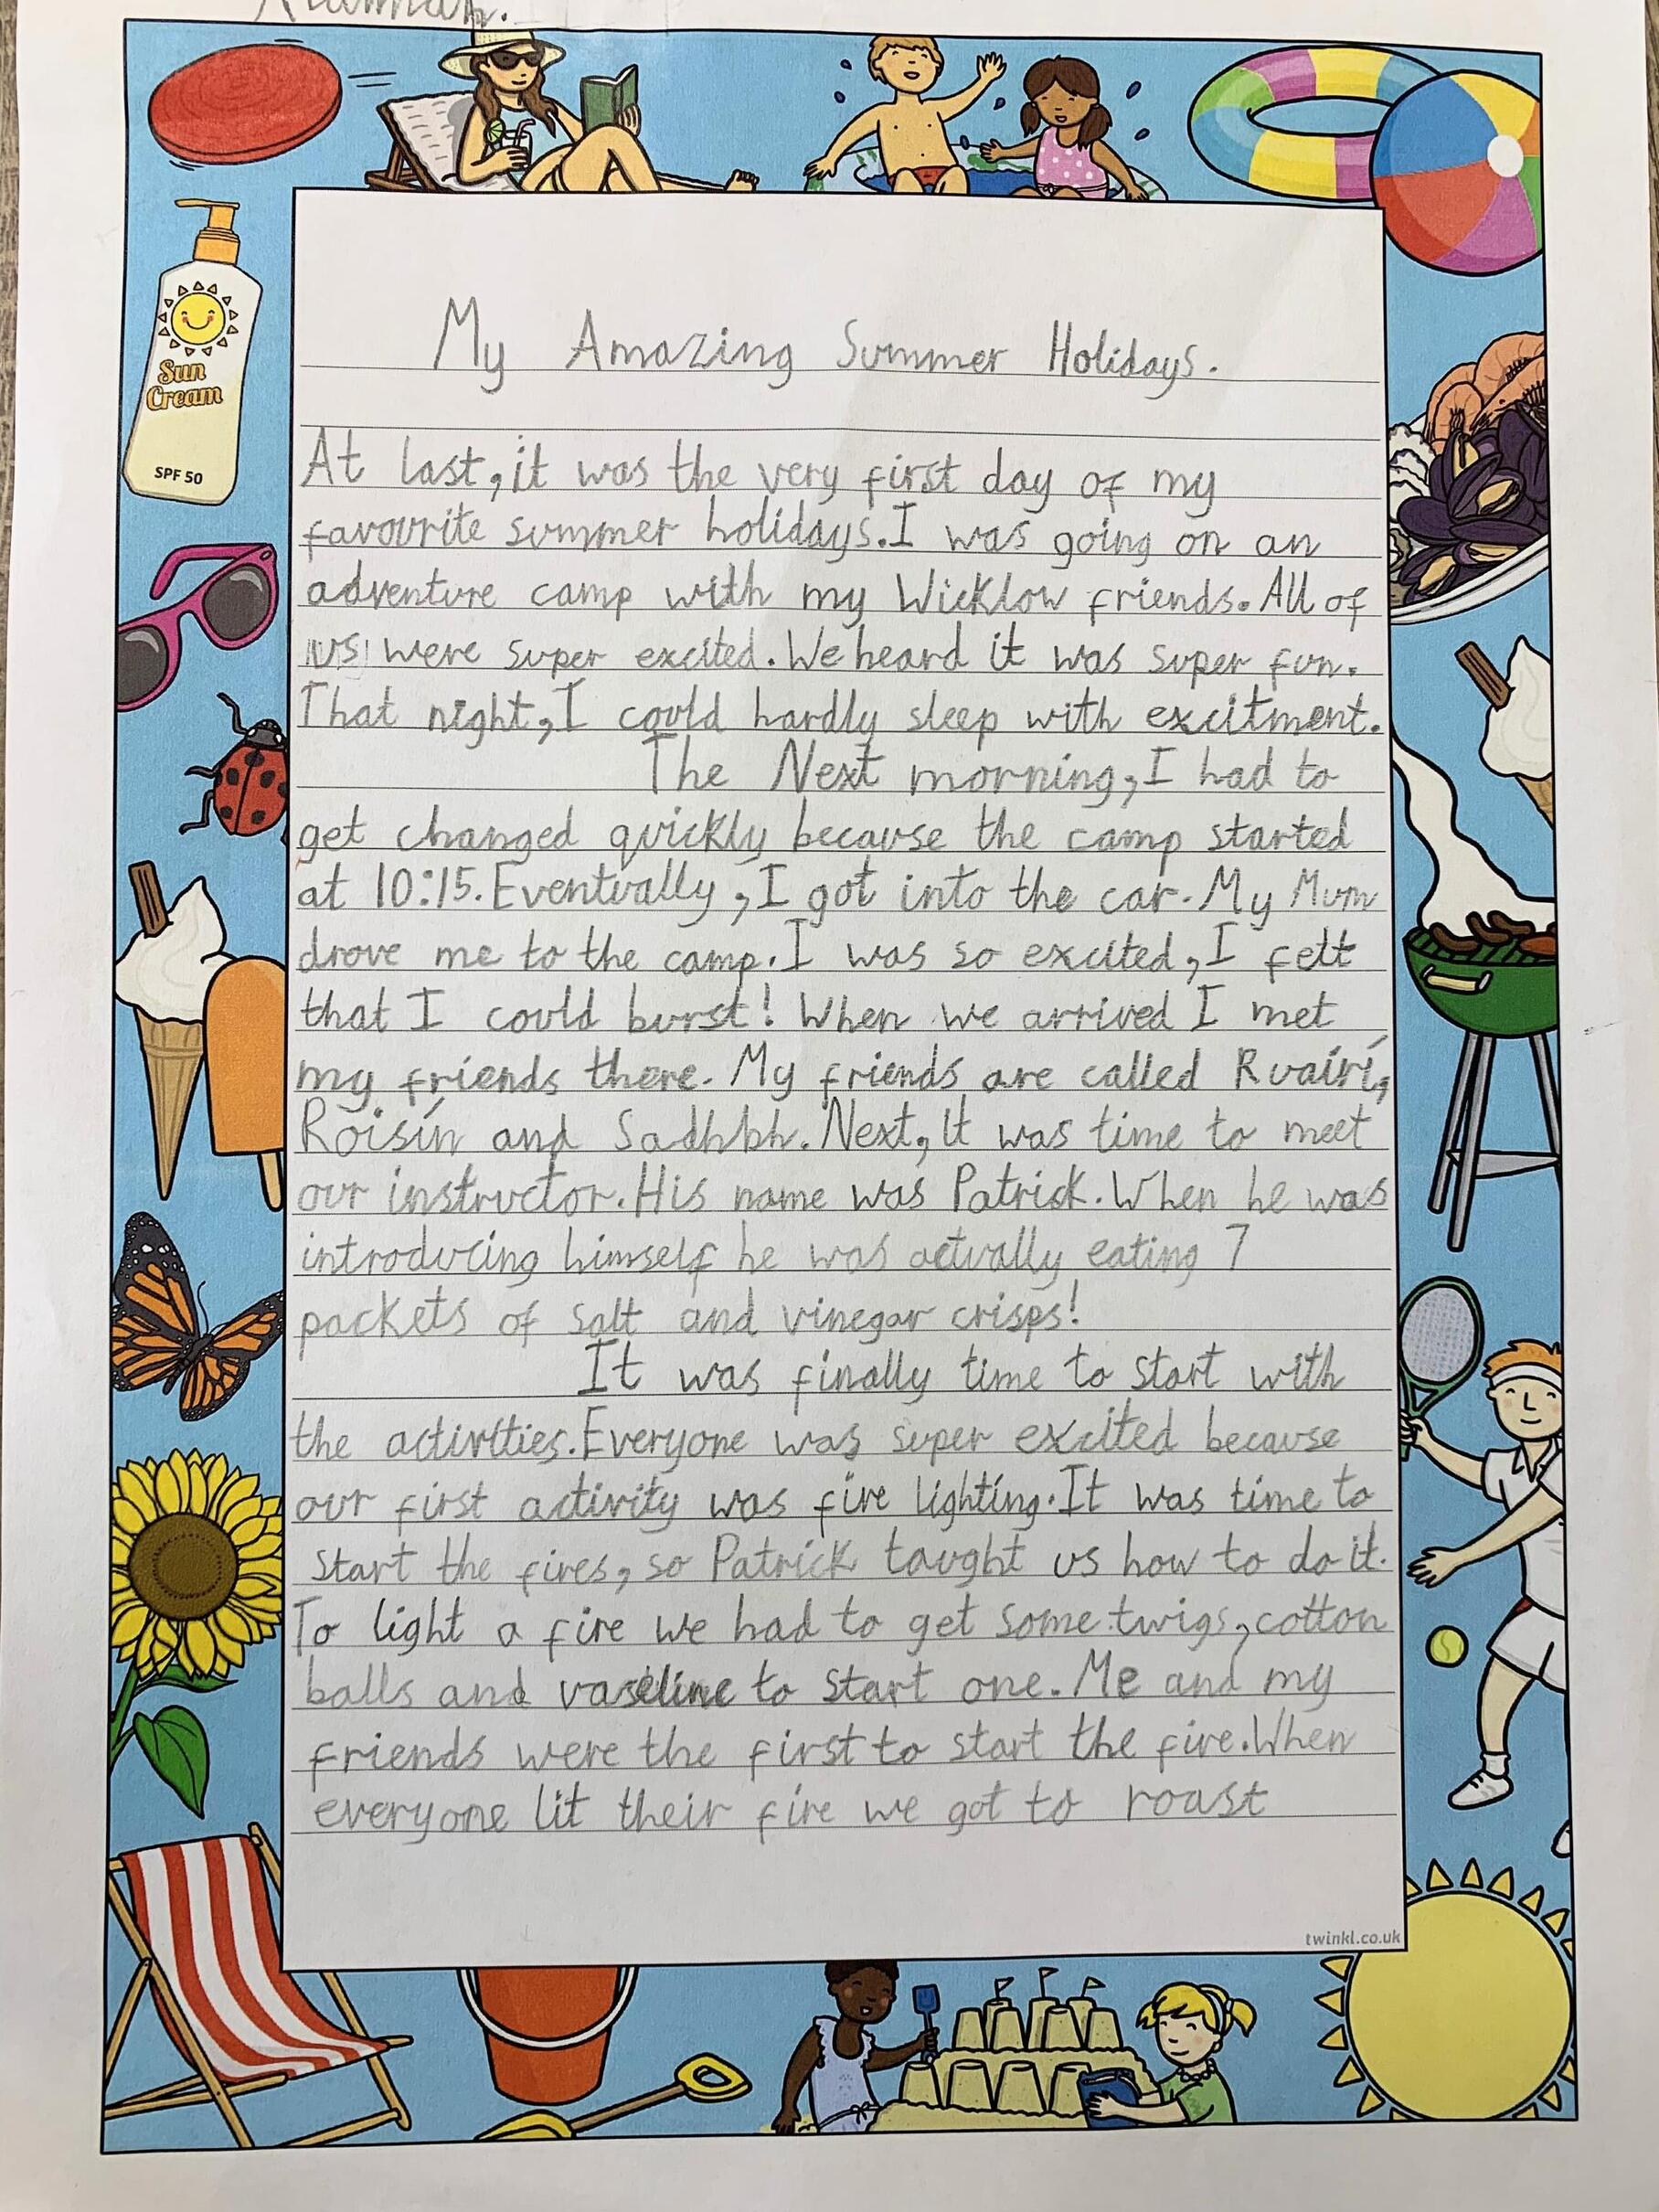 My Amazing Summer Holidays.
At last, it was the very first day of my
favourite summer holidays. I was going on an
adventure camp with my Wicklow friends. All of
us were super excited. We heard it was super fun.
That night, I could hardly sleep with excitment.
The Next morning, I had to
get changed quickly because the camp started
at 10:15. Eventually, I got into the car. My Mum
drove me to the camp. I was so excited, I felt
that I could burst! When we arrived I met
my friends there. My friends are called Ruairí,
Roisín and Sadhbh. Next, It was time to meet
our instructor. His name was Patrick. When he was
introducing himself he was actually eating 7
packets of salt and vinegar crisps!
It was finally time to start with
the activities. Everyone was super excited because
our first activity was fire lighting. It was time to
start the fires, so Patrick taught us how to do it.
To light a fire we had to get some twigs, cotton
balls and vaseline to start one. Me and my
friends were the first to start the fire. When
everyone lit their fire we got to roast
Sun
Cream
SPF 50
twinkl.co.uk